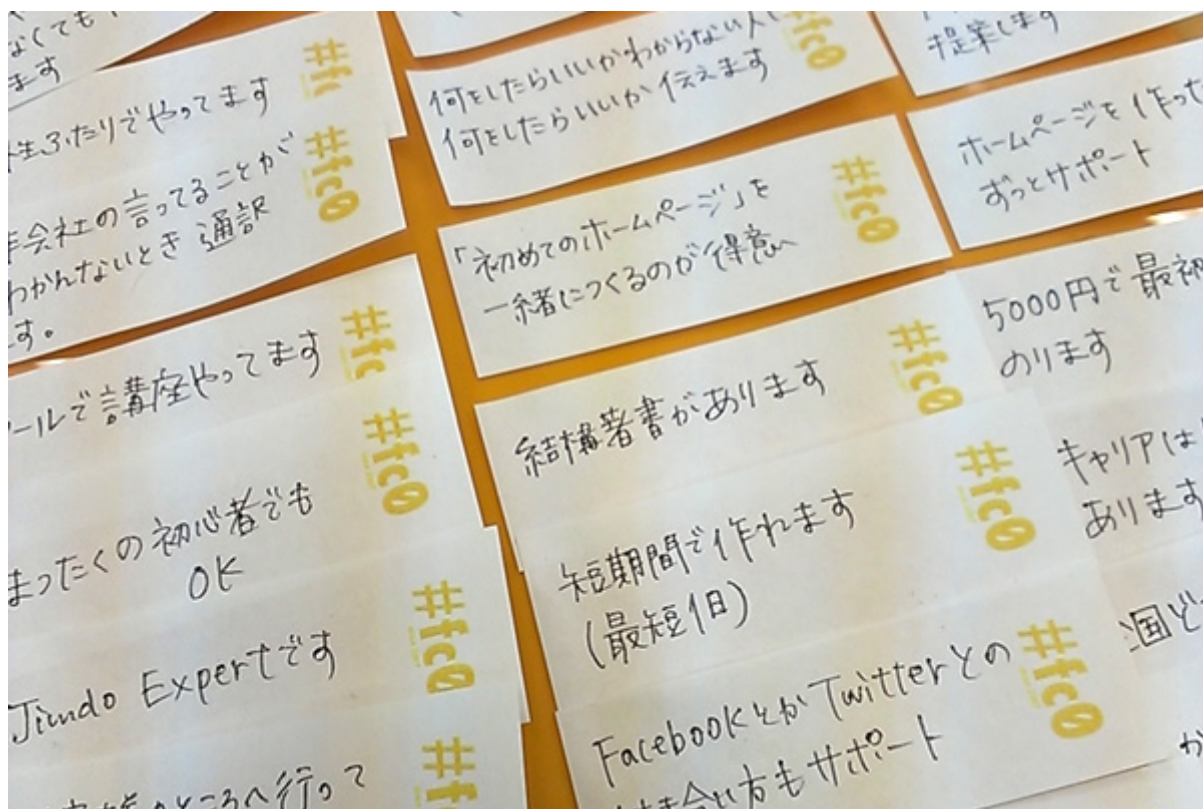 なくても
ます
#fc
ふたりでやってます
#fc0
会社の言ってることが
わかんないとき 通訳
す。
#fc
ールで講座やってます
#fc0
まったくの初心者でも
OK
#fc0
Jimdo Expertです
#fc
ところへ行って
#fc0
何をしたらいいかわからない人に
何をしたらいいか伝えます
#fc0
「初めてのホームページ」を
一緒につくるのが得意
#fc0
結構著書があります
#fc0
短期間で作れます
(最短1日)
#fc0
FacebookとかTwitterとの
合い方もサポート
提案します
ホームページを作った
ずっとサポート
5000円で最初
のります
キャリアは
あります
国ど
か